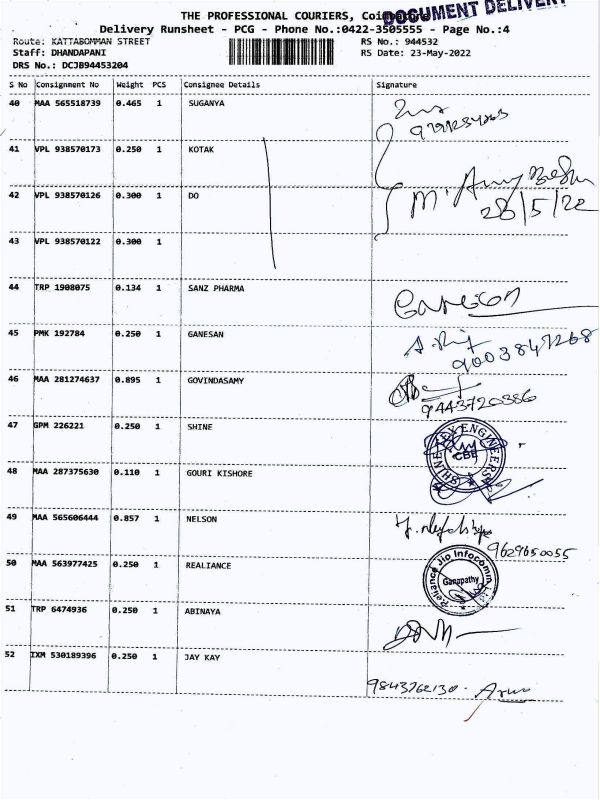 THE PROFESSIONAL COURIERS, Coimbatore
DOCUMENT DELIVERY
Delivery Runsheet - PCG - Phone No.:0422-3505555 - Page No.:4
Route: KATTABOMMAN STREET RS No.: 944532
Staff: DHANDAPANI RS Date: 23-May-2022
DRS No.: DCJB94453204
S No Consignment No Weight PCS Consignee Details Signature
40 MAA 565518739 0.465 1 SUGANYA
41 VPL 938570173 0.250 1 KOTAK
42 VPL 938570126 0.300 1 DO
28/5/22
43 VPL 938570122 0.300 1
44 TRP 1908075 0.134 1 SANZ PHARMA
45 PMK 192784 0.250 1 GANESAN
9003847268
46 MAA 281274637 0.895 1 GOVINDASAMY
9443720386
47 GPM 226221 0.250 1 SHINE
CBE
48 MAA 287375630 0.110 1 GOURI KISHORE
49 MAA 565606444 0.857 1 NELSON
9629650055
50 MAA 563977425 0.250 1 REALIANCE
Reliance Jio Infocomm
Ganapathy
51 TRP 6474936 0.250 1 ABINAYA
52 IXM 530189396 0.250 1 JAY KAY
9843762130. Arun